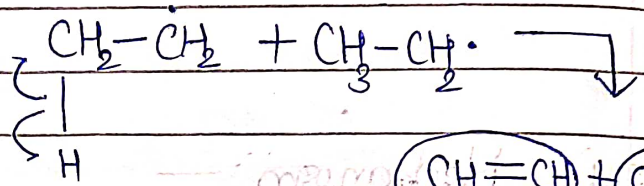 CH₂–ĊH₂ + CH₃–CH₂·
H
CH=CH +